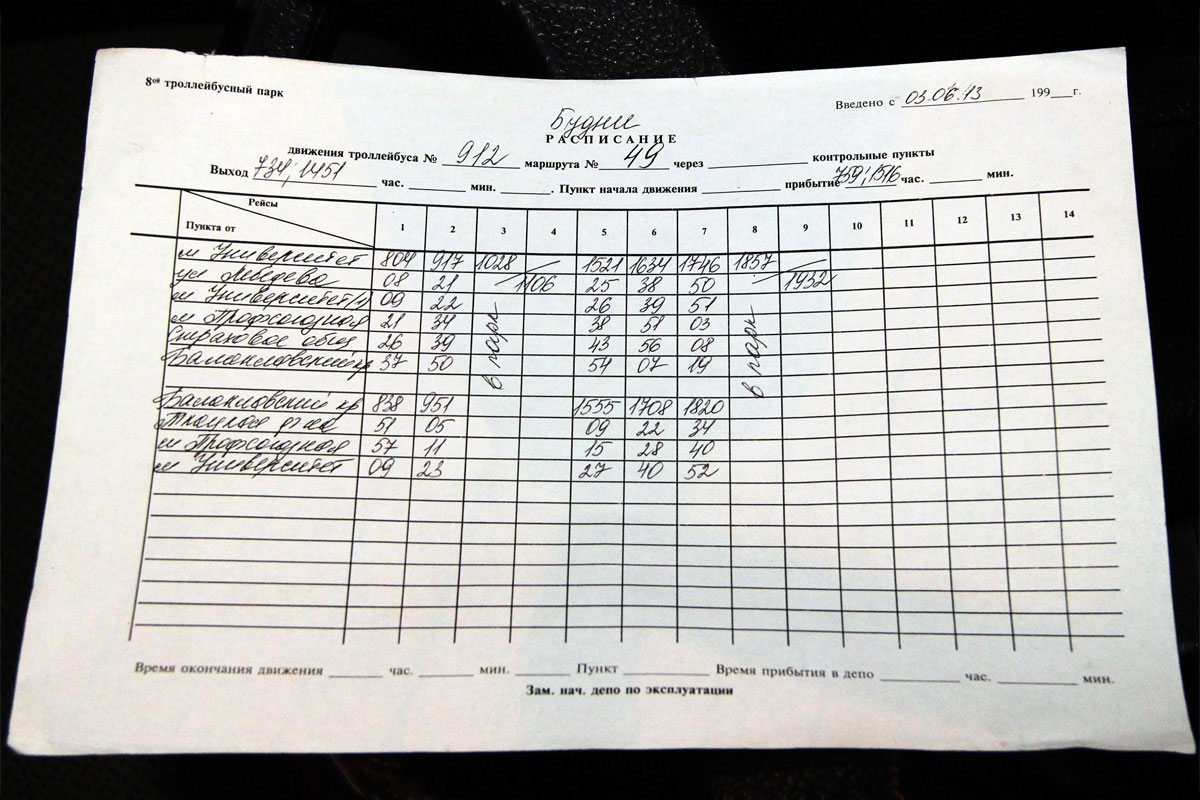 8ой троллейбусный парк
Введено с 03.06.13 199 г.
Будни
РАСПИСАНИЕ
движения троллейбуса № 912 маршрута № 49 через контрольные пункты
Выход 734; 1451 час. мин. . Пункт начала движения прибытие 759; 1516 час. мин.
Рейсы
Пункта от 1 2 3 4 5 6 7 8 9 10 11 12 13 14
м Университет 804 917 1028 1521 1634 1746 1857
ул Лебедева 08 21 1106 25 38 50 1932
м Университет 09 22 26 39 51
м Профсоюзная 21 34 38 51 03
Страховое общ 26 39 43 56 08
Балаклавский пр 37 50 54 07 19
в парк в парк
Балаклавский пр 838 951 1555 1708 1820
51 05 09 22 34
м Профсоюзная 57 11 15 28 40
м Университет 09 23 27 40 52
Время окончания движения час. мин. Пункт Время прибытия в депо час. мин.
Зам. нач. депо по эксплуатации